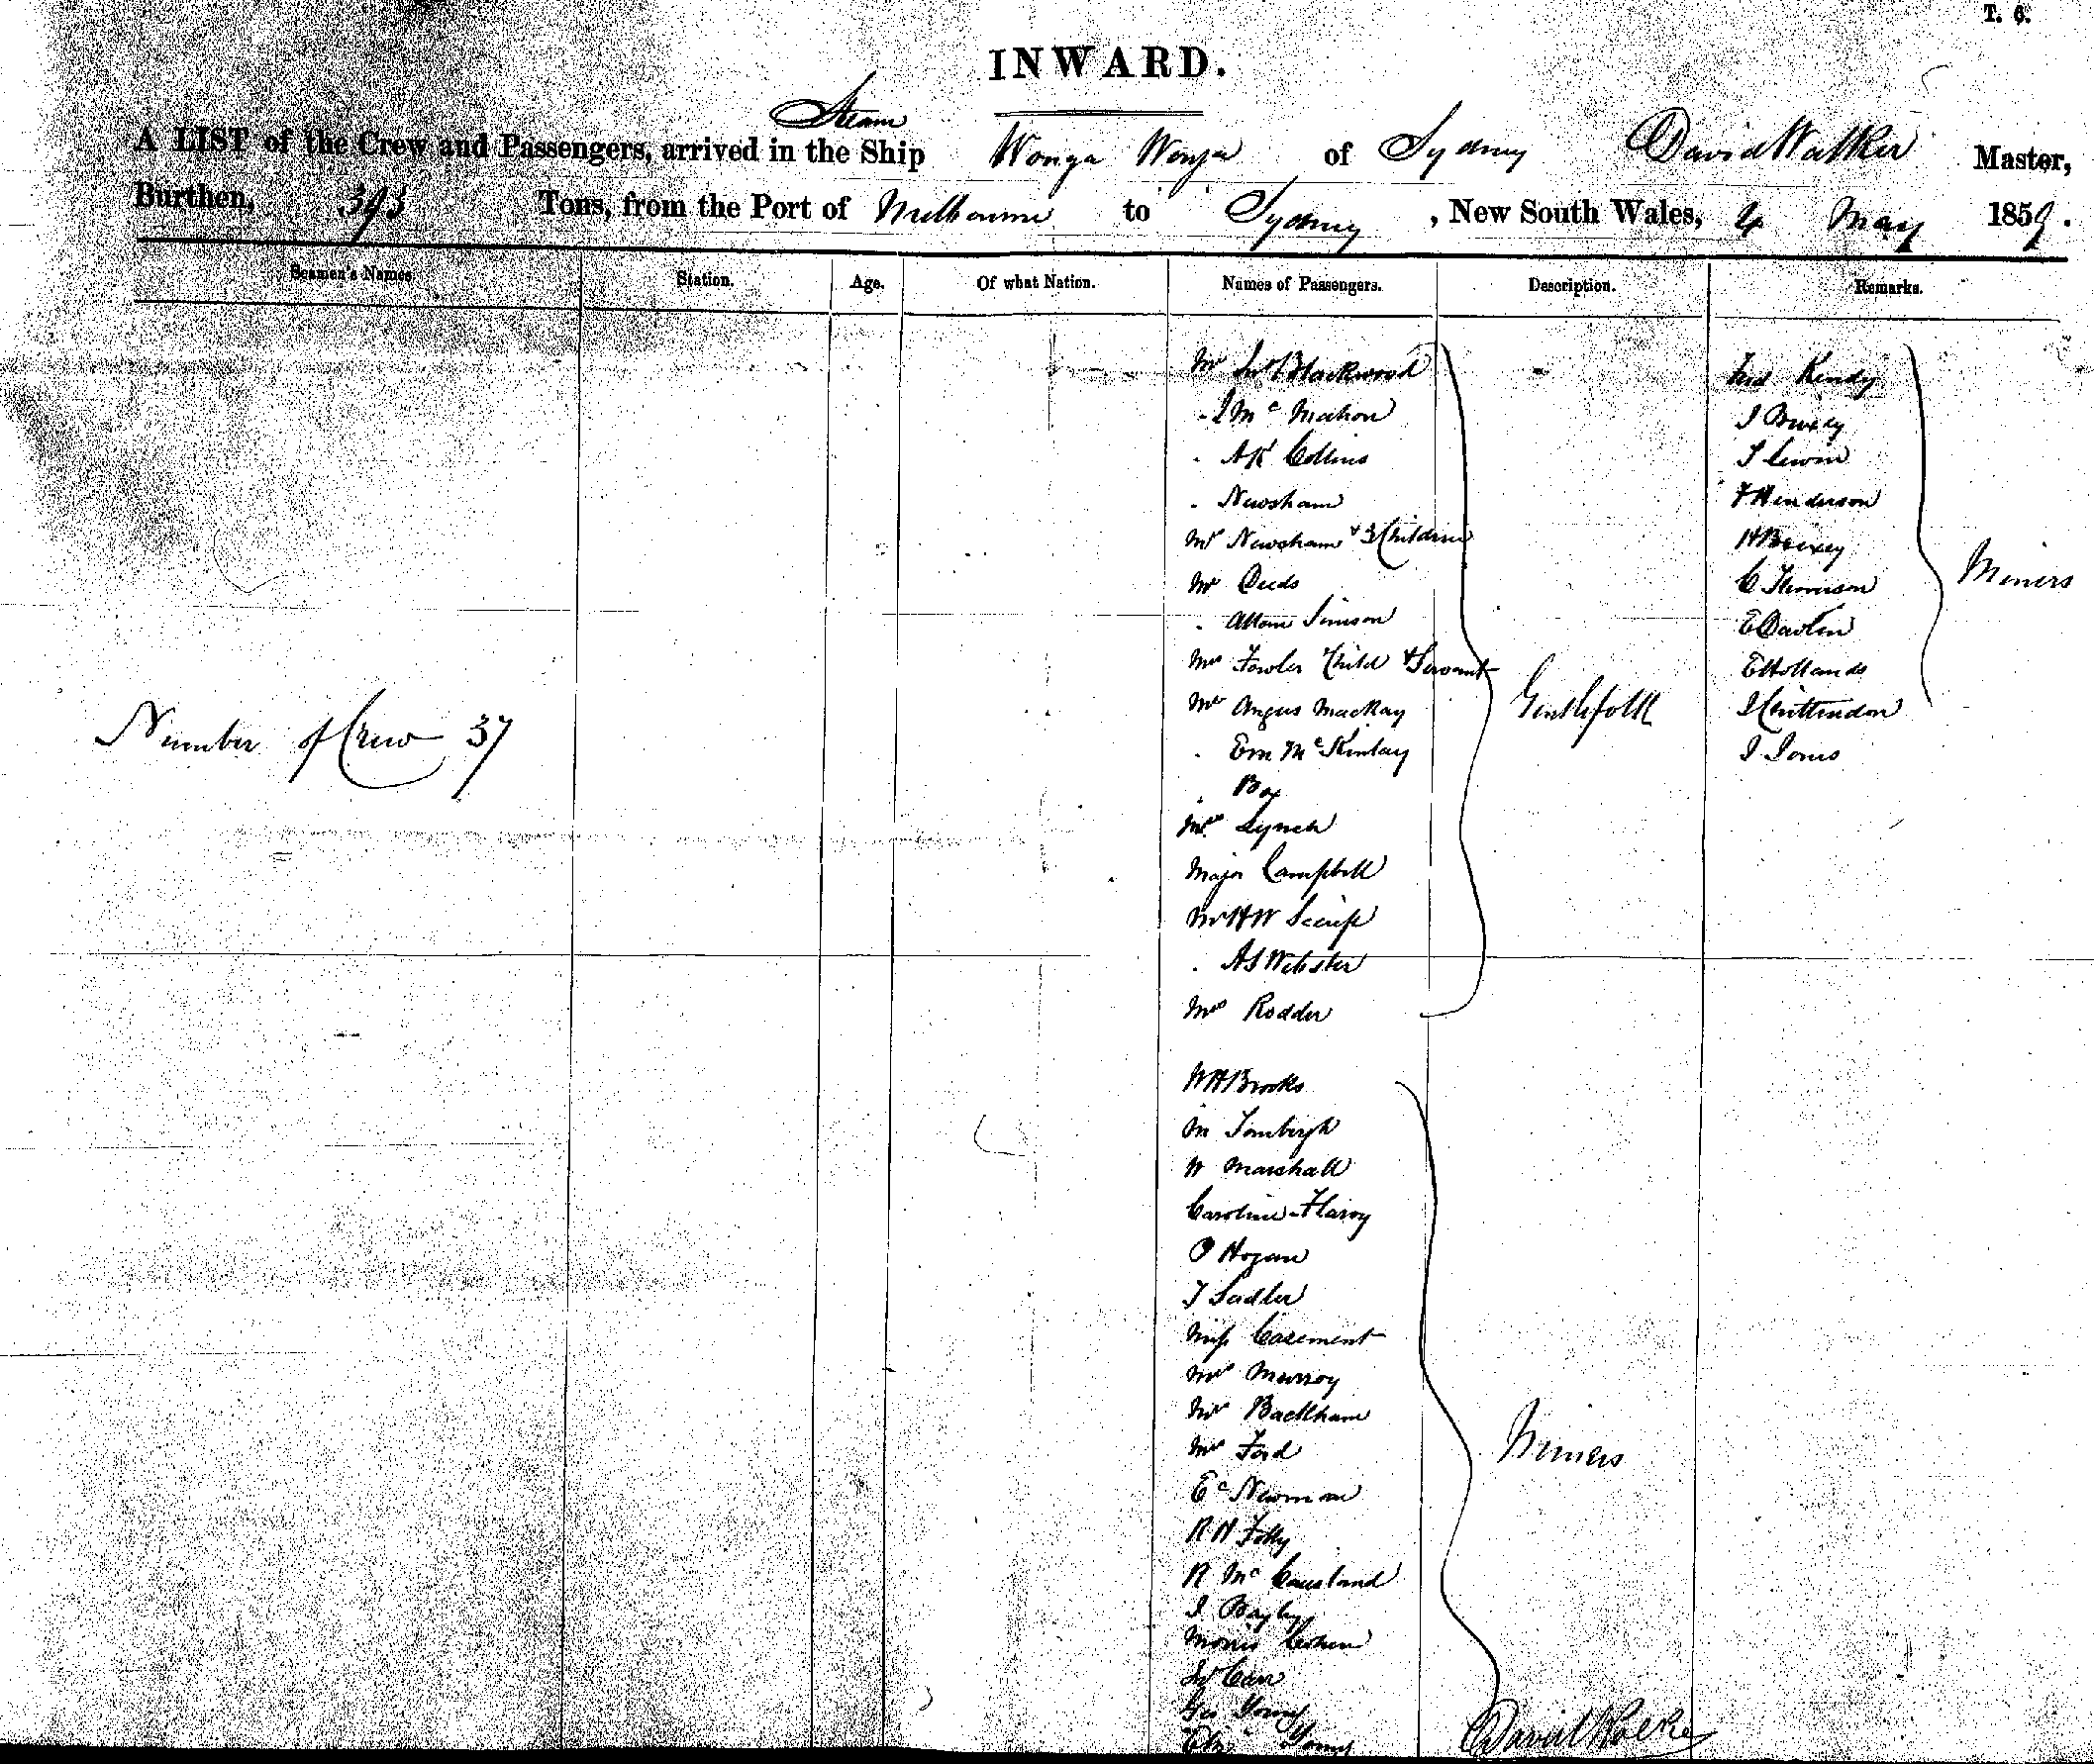 T. 6.
INWARD.
Steam
A LIST of the Crew and Passengers, arrived in the Ship Wonga Wonga of Sydney David Walker Master,
Burthen, 393 Tons, from the Port of Melbourne to Sydney, New South Wales, 4 May 1859.
Seamen's Names Station. Age. Of what Nation. Names of Passengers. Description. Remarks.
Number of Crew 37
Mr Blackwood
- J Mc Mahon
. AK Collins
. Newsham
Mrs Newsham & 3 Children
Mr Deeds
. Simson
Mrs Fowler Child & Servant
Mr Angus MacKay
. Em Mc Kinlay
. Box
Mrs Lynch
Major Campbell
Mr HW
. AS Webster
Mrs Rodder
Gentlefolk
WH Brooks
M
W Marshall
Caroline
P Hogan
T Sadler
Miss Casement
Mrs Murroy
Mr Backham
Mrs Ford
Newman
RH
R Mc Causland
J Bayley
Morris Cohen
Carr
Geo Young
Young
Miners
Kendy
J
S
F Henderson
H
C
E
E Hollands
J Chittendon
J Jones
Miners
David Walker